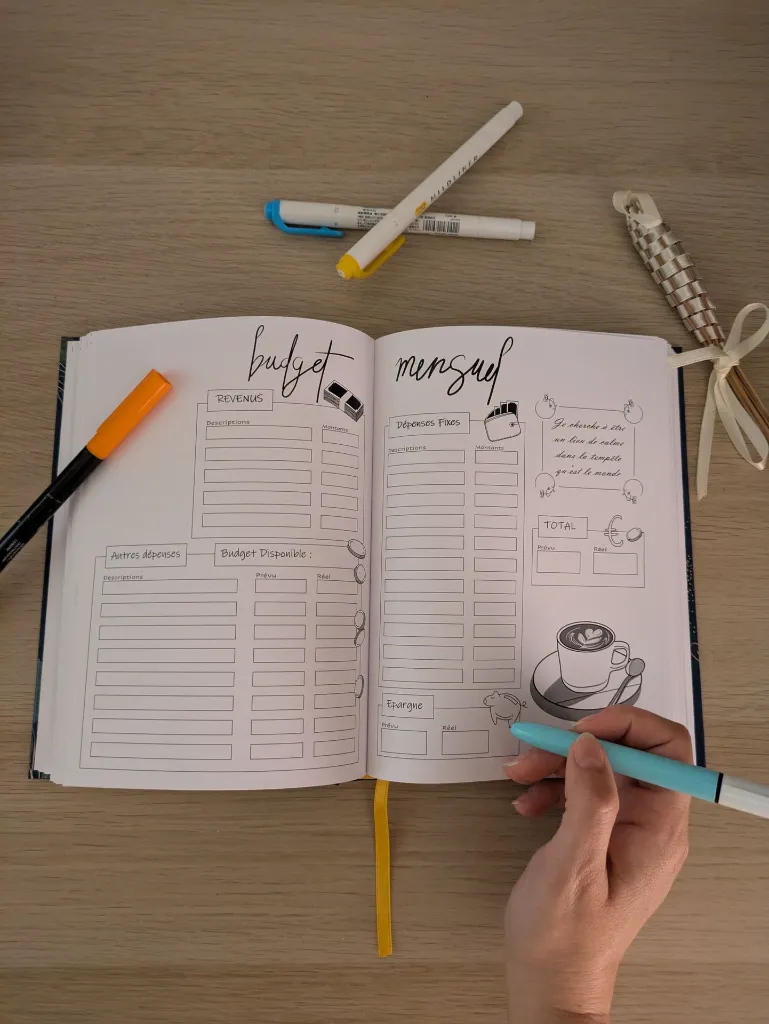 MILDLINER
budget
REVENUS
Descriptions
Montants
Autres dépenses
Budget Disponible :
Descriptions
Prévu
Réel
mensuel
Dépenses Fixes
Descriptions
Montants
Je cherche à être
un lieu de calme
dans la tempête
qu'est le monde
TOTAL
Prévu
Réel
Epargne
Prévu
Réel